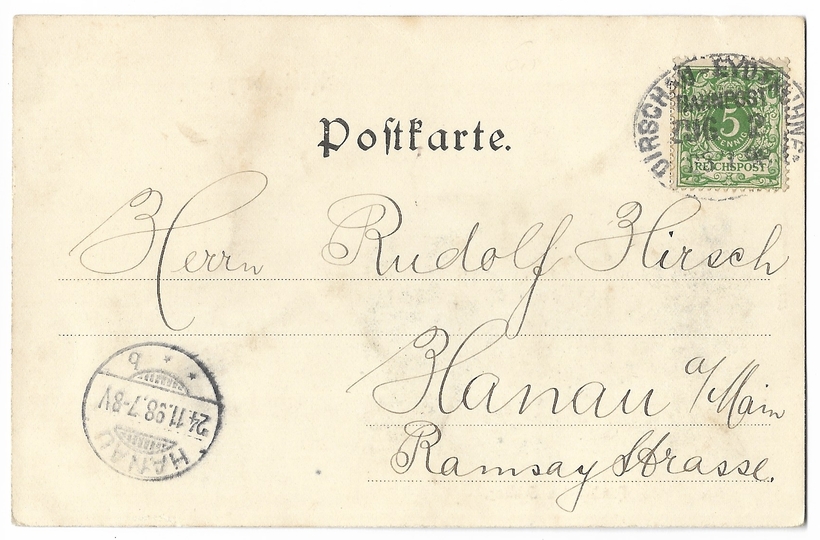 Postkarte.
DIRSCHAU EYDTKUHNEN
BAHNPOST
ZUG 2
5
PFENNIG
REICHSPOST
Herrn Rudolf Hirsch
Hanau a/Main
Ramsay Strasse.
HANAU
24.11.98.7-8V
* b *